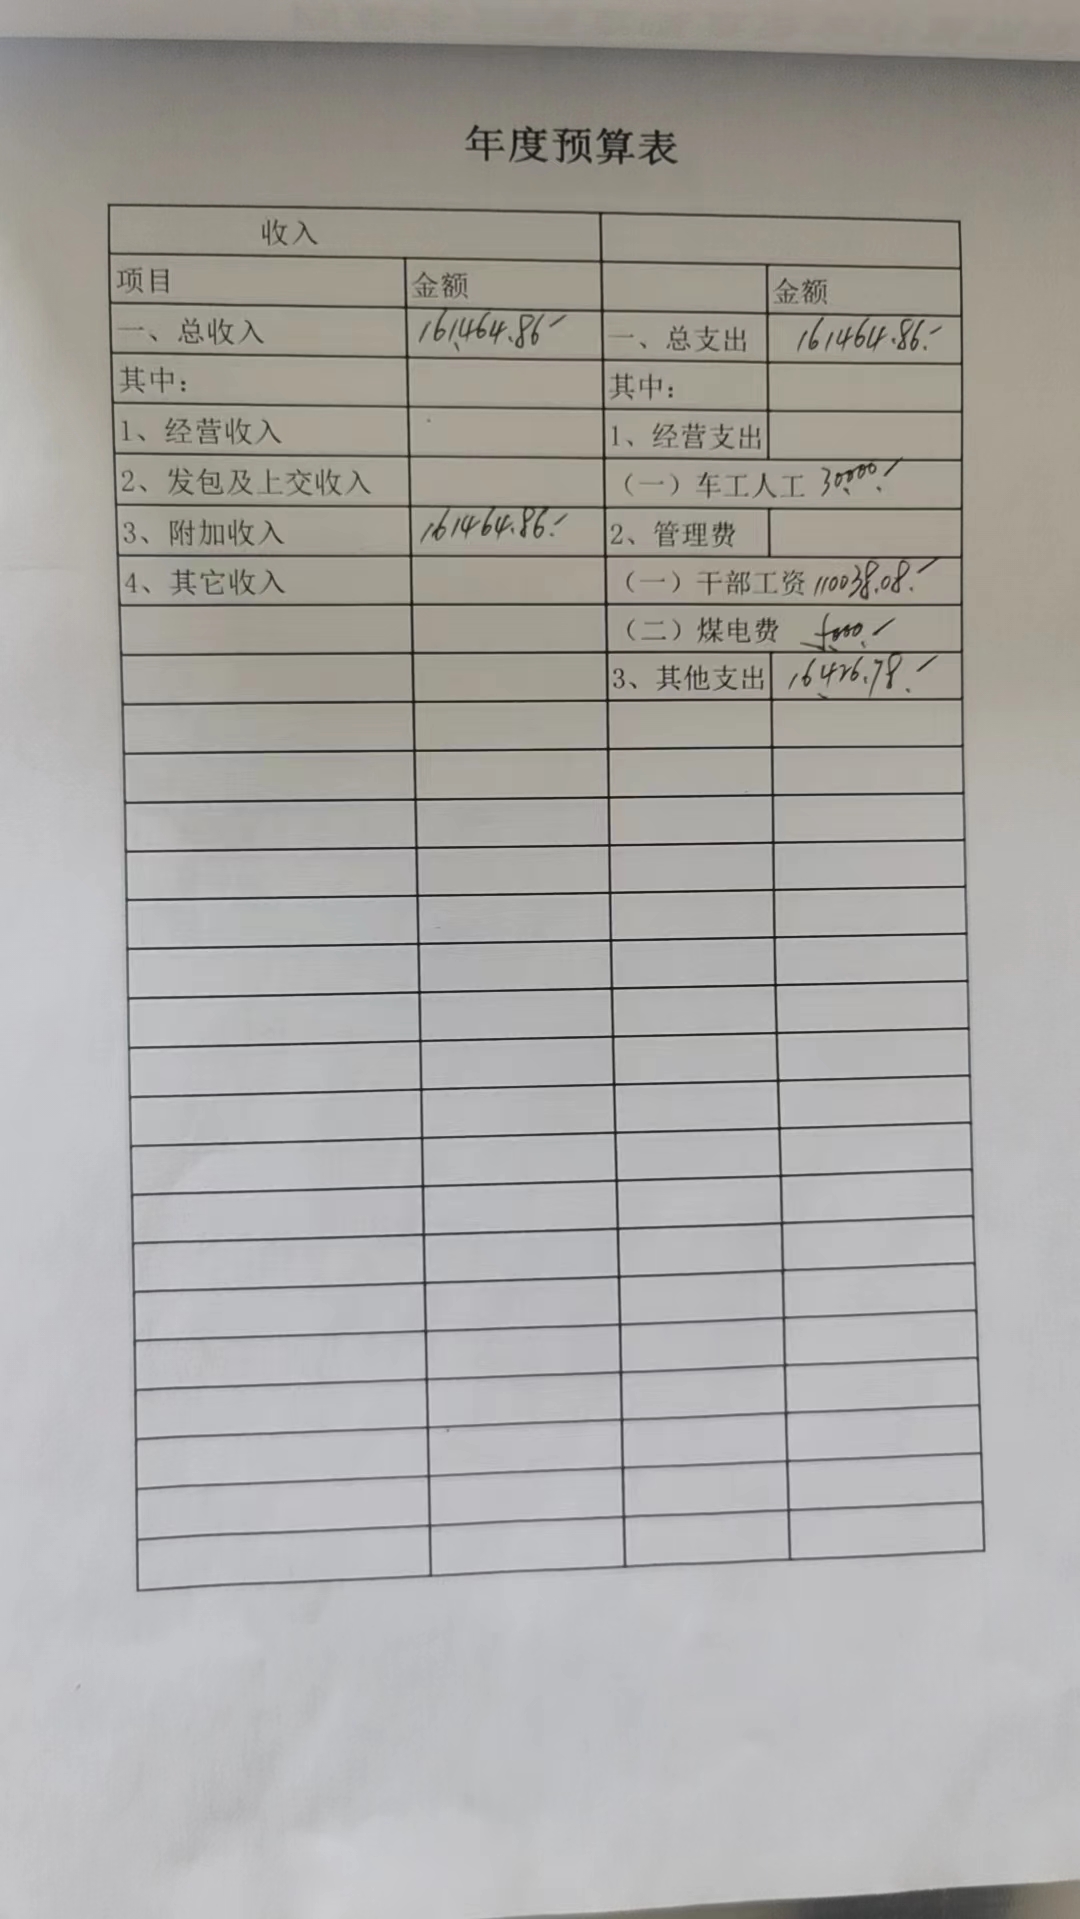 年度预算表
收入
项目 金额 金额
一、总收入 161464.86 一、总支出 161464.86
其中： 其中：
1、经营收入 1、经营支出
2、发包及上交收入 （一）车工人工 30000
3、附加收入 161464.86 2、管理费
4、其它收入 （一）干部工资 110038.08
（二）煤电费 5000
3、其他支出 16426.78